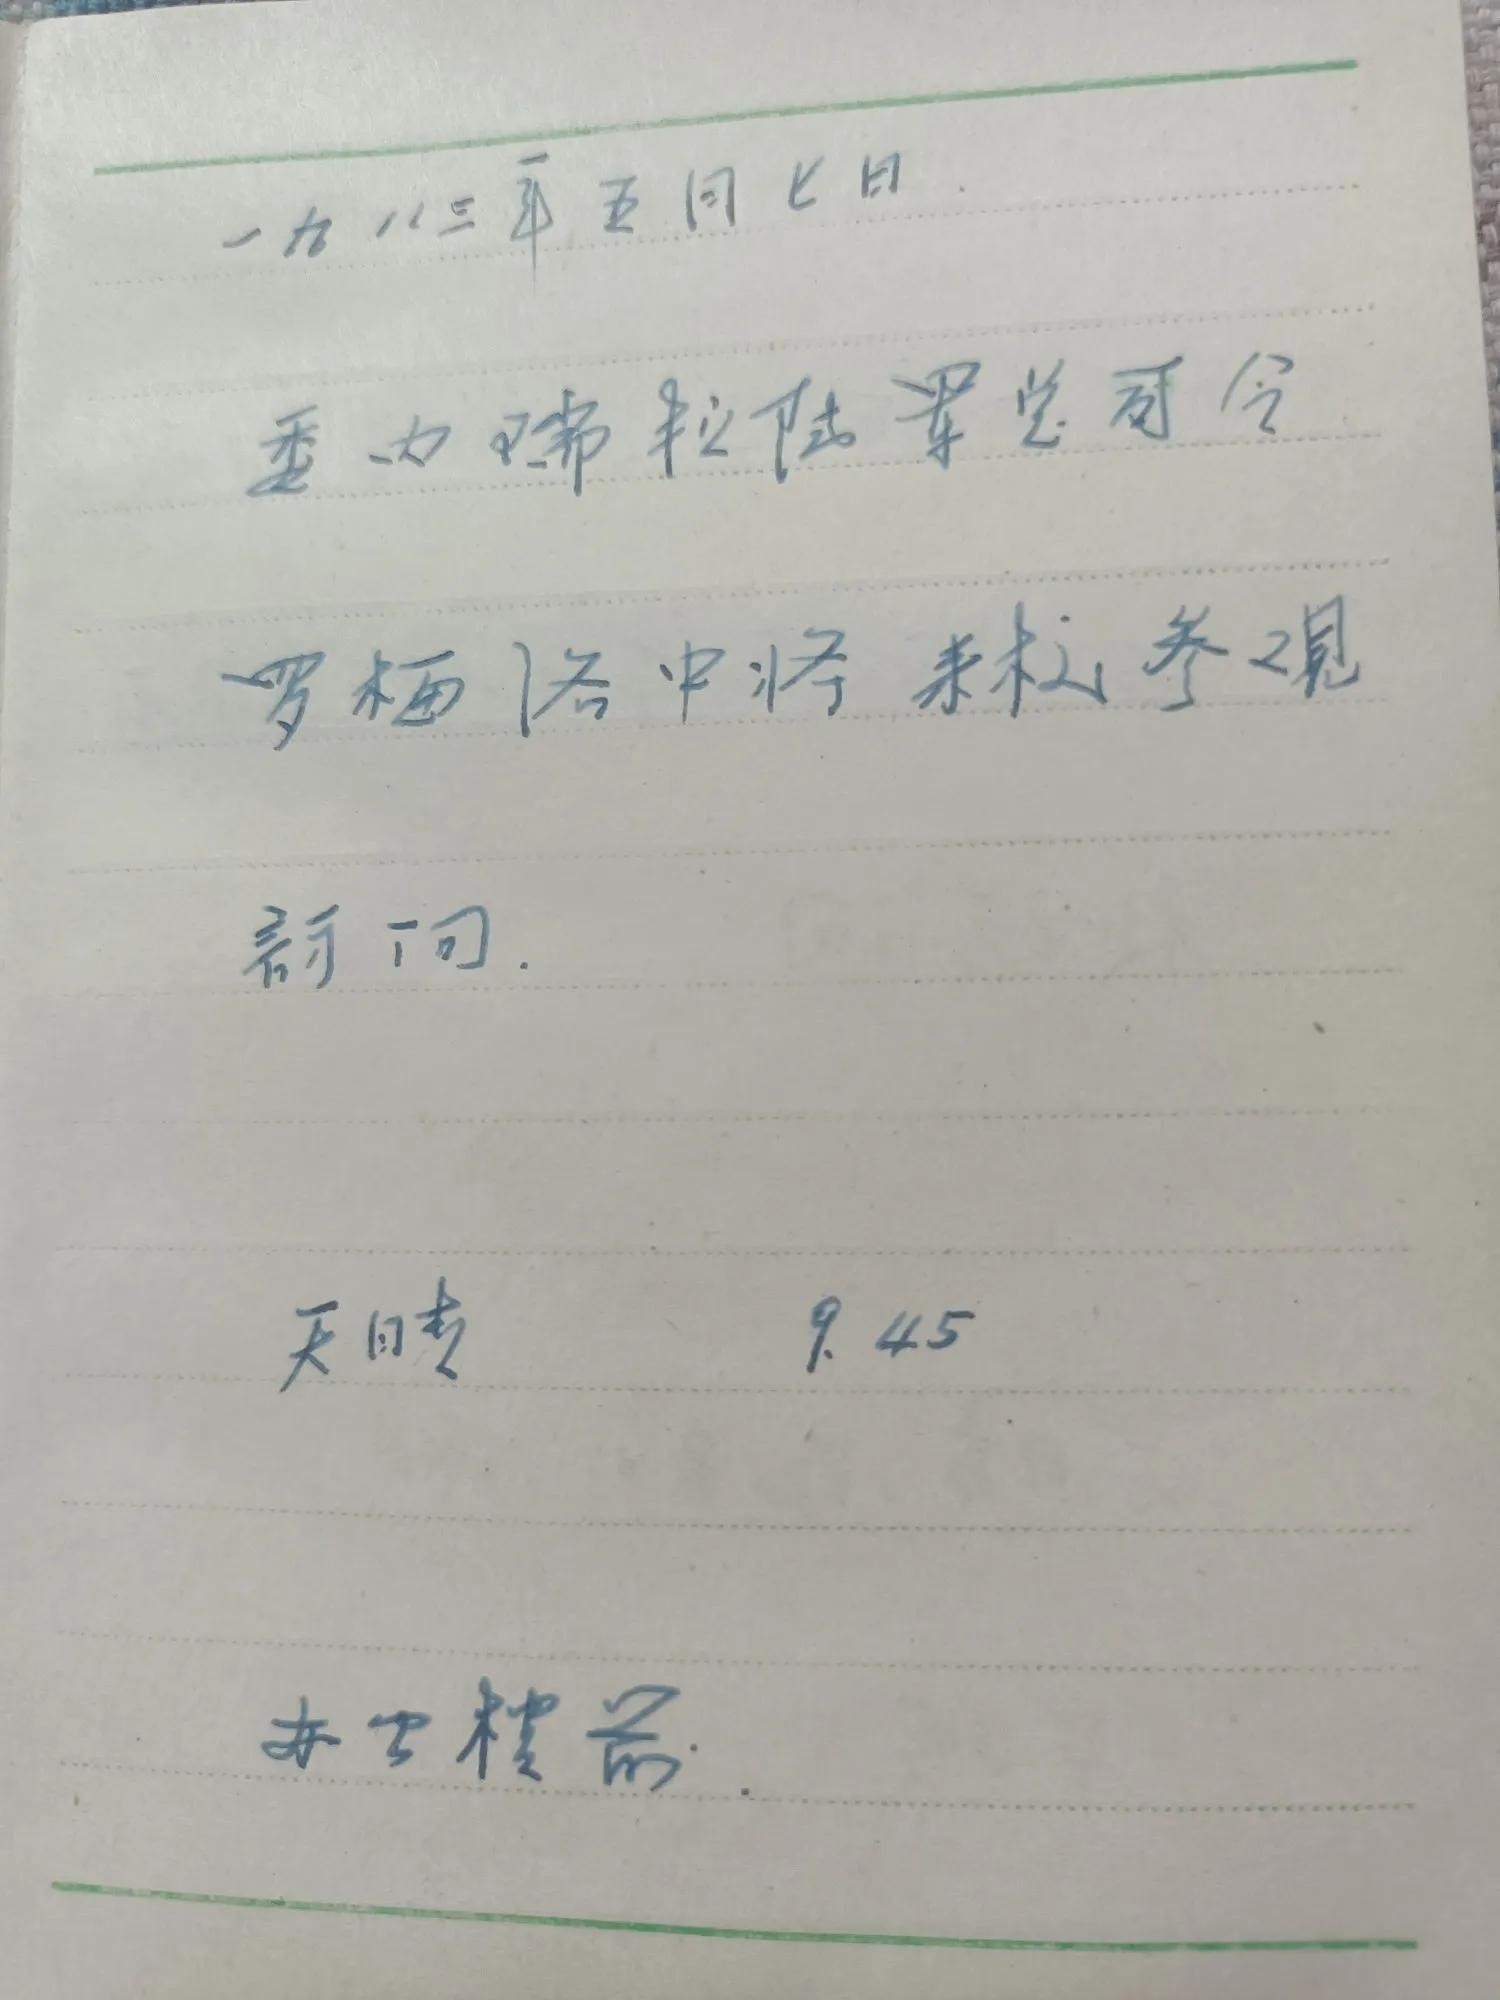 一九八三年五月七日.
委内瑞拉陆军总司令
罗梅洛中将 来校参观
访问.
天晴 9.45
办公楼前.